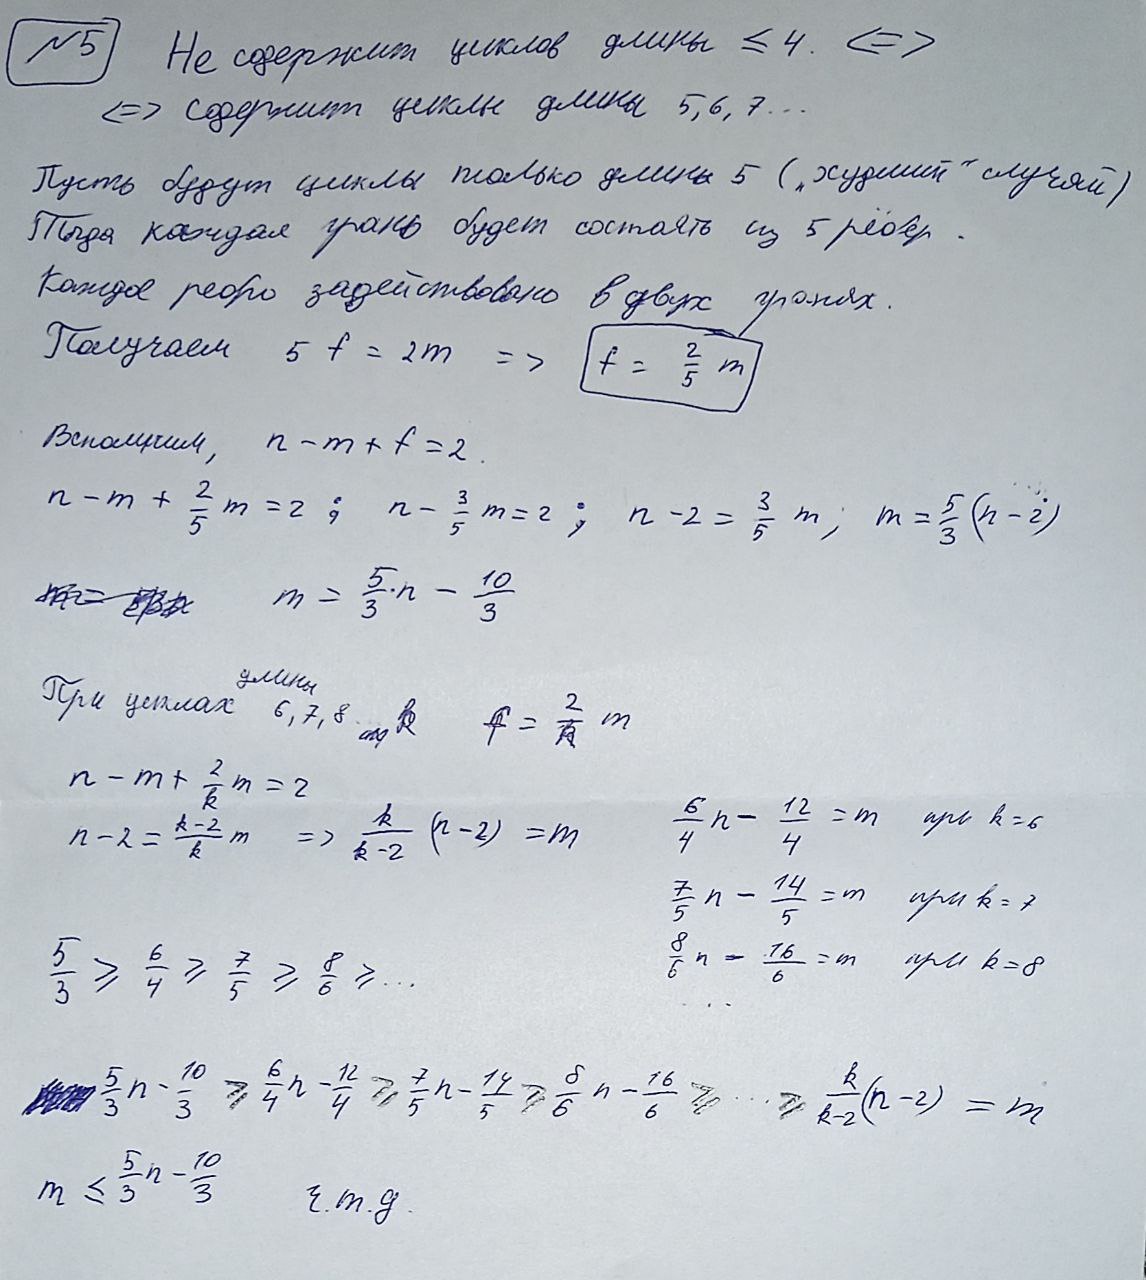 №5 Не содержит циклов длины ≤ 4. <=>
<=> содержит циклы длины 5, 6, 7...
Пусть будут циклы только длины 5 („худший“ случай)
Тогда каждая грань будет состоять из 5 рёбер.
Каждое ребро задействовано в двух гранях.
Получаем 5 f = 2m => f = 2/5 m
Вспомним, n - m + f = 2.
n - m + 2/5 m = 2 ; n - 3/5 m = 2 ; n - 2 = 3/5 m ; m = 5/3 (n - 2)
m = 5/3 · n - 10/3
При циклах длины 6, 7, 8 ... k f = 2/k m
n - m + 2/k m = 2
n - 2 = k-2/k m => k/k-2 (n - 2) = m
6/4 n - 12/4 = m при k = 6
7/5 n - 14/5 = m при k = 7
8/6 n - 16/6 = m при k = 8
...
5/3 ≥ 6/4 ≥ 7/5 ≥ 8/6 ≥ ...
5/3 n - 10/3 ≥ 6/4 n - 12/4 ≥ 7/5 n - 14/5 ≥ 8/6 n - 16/6 ≥ ... ≥ k/k-2 (n - 2) = m
m ≤ 5/3 n - 10/3 ч.т.д.